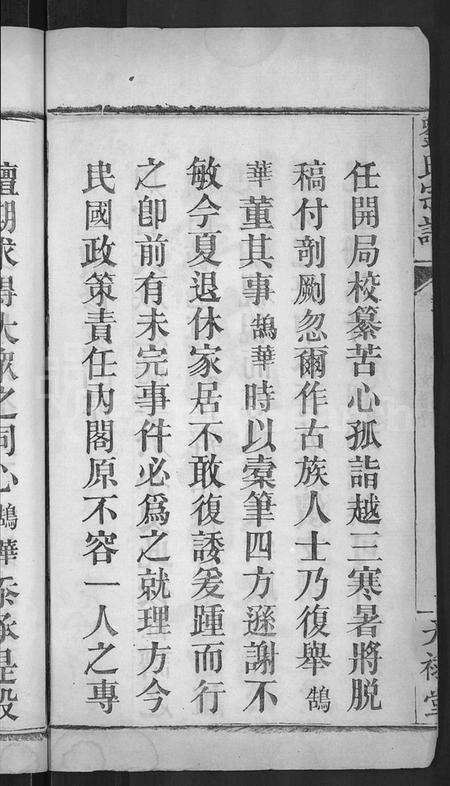 氏宗譜
任開局校纂苦心孤詣越三寒暑將脫
稿付剞劂忽爾作古族人士乃復舉鵠
華董其事鵠華時以橐筆四方遜謝不
敏今夏退休家居不敢復諉爰踵而行
之卽前有未完事件必爲之就理方今
民國政策責任內閣原不容一人之專
大眾之同心鵠華忝承是役